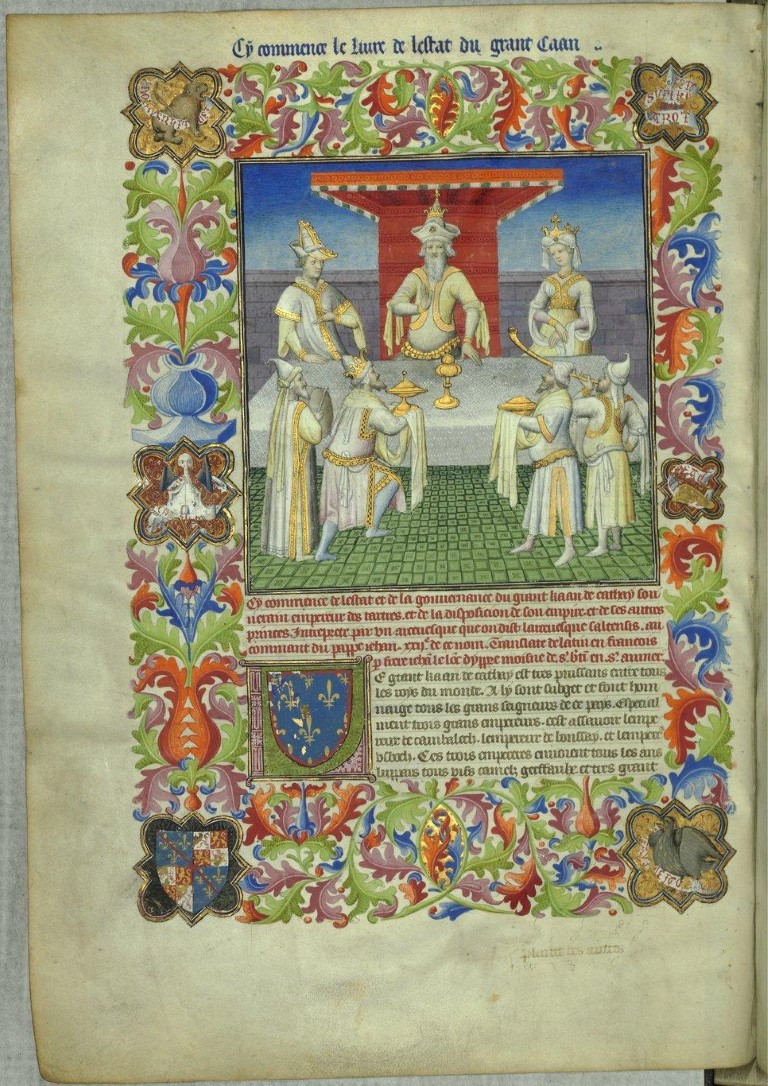 Cy commence le liure de lestat du grant Caan
Cy commence de lestat et de la gouuernance du grant kaan de cathay sou
uerain empereur des tartres. et de la disposicion de son empire. et de ses autres
princes. Interprete par vn arceuesque que on dist larceuesque saltensis. au
commant du pappe iehan .xxij.e de ce nom. Translate de latin en francois
p frere iehā le lōc dyppre moisne de s. bt̄i en s. aumer.
E grant kaan de cathay est tres puissans entre tous
les roys du monde. A ly sont subget et font hom
mage tous les grans seigneurs de ce pays. Especial
ment trois grans empereurs. cest assauoir lempe
reur de cambalech. lempereur de boussay. et lempere
vsbech. Ces trois empereres enuoient tous les ans
lyepars tous vifs camelz gerffaulx. et tres grant